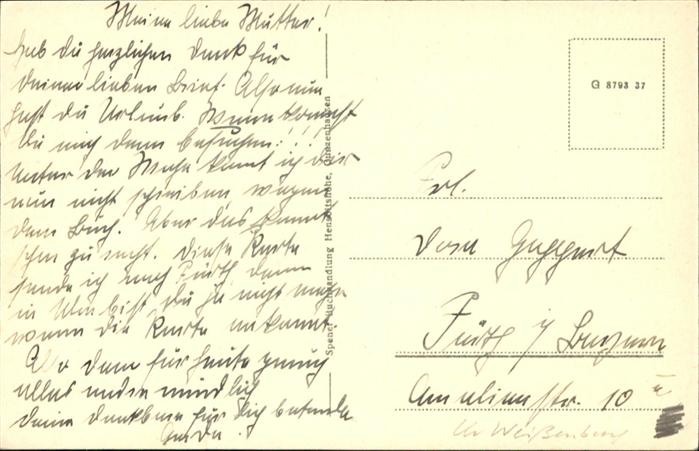 Meine liebe Mutter!
Hab du herzlichen Dank für
deinen lieben Brief. Also nun
hast du Urlaub. Wann kommst
du mich denn besuchen!!!
Unter der Woche kannt ich dir
nun nicht schreiben wegen
dem Aber das kommt
schon zu recht. Diese Karte
sende ich nach Fürth denn
in Ulm bist du ja nicht mehr
wenn die Karte ankommt.
So denn für heute genug
alles andre mündlich
deine dankbare für dich betende
G 8793 37
Spener Buchhandlung Hensoltshöhe, Gunzenhausen
Frl.
Fürth i/ Bayern
Amalienstr. 10 II
Weißenburg